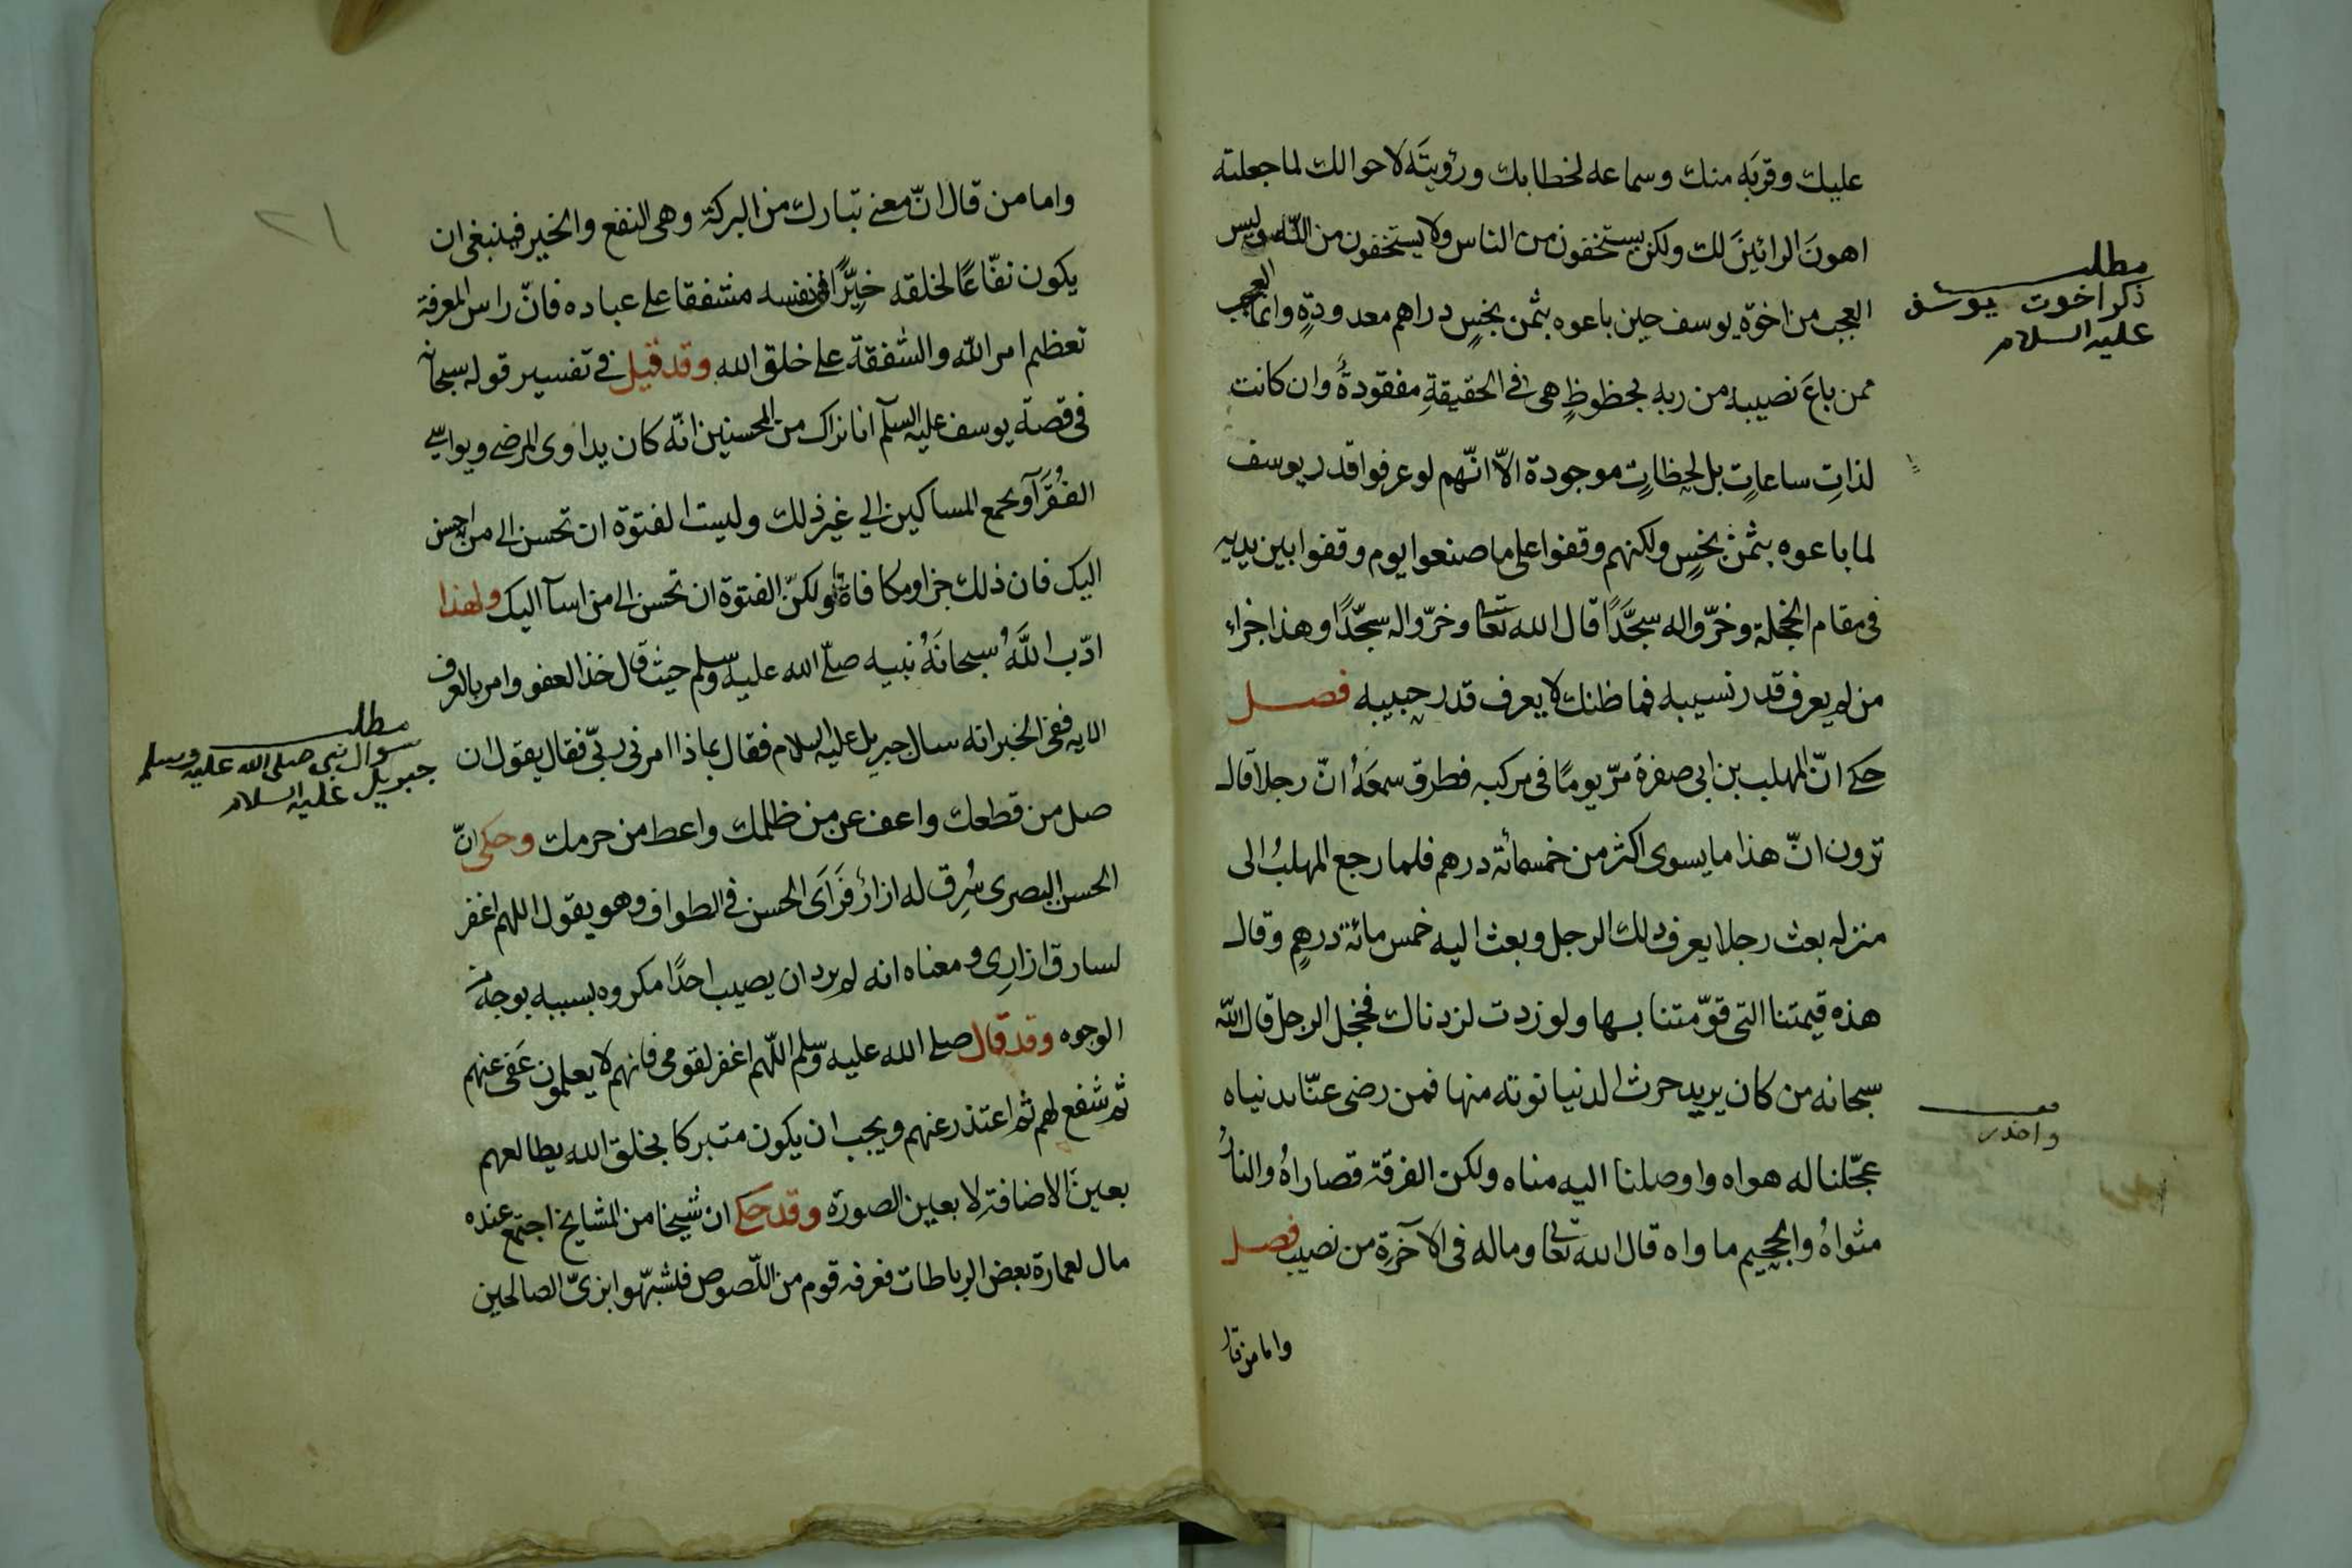 عليك وقربَه منك وسماعه لخطابك ورؤيتَه لاحوالك لما جعلته
اهونَ الرائينَ لك ولكن يستخفون من الناس ولا يستخفون من الله وليس
العجب من اخوة يوسف حين باعوه بثمن بخسٍ دراهم معدودةٍ وانما العجب
ممن باعَ نصيبه من ربه بحظوظٍ هى فى الحقيقةِ مفقودةٌ وان كانت
لذاتِ ساعاتٍ بل لحظاتٍ موجودة الّا انّهم لو عرفوا قدر يوسف
لما باعوه بثمن بخسٍ ولكنهم وقفوا على ما صنعوا يوم وقفوا بين يديه
فى مقام الخجلة وخرّوا له سجَّدًا قال الله تعالى وخرّوا له سجّدًا وهذا جزاء
من لم يعرف قدر نسيبه فما ظنك لا يعرف قدر حبيبه فصل
حكى انّ المهلب بن ابى صفرة مرّ يومًا فى مركبه فطرق سمعَهُ انّ رجلا قال
ترون انّ هذا ما يسوى اكثر من خمسمائة درهم فلما رجع المهلبُ الى
منزله بعث رجلا يعرف ذلك الرجل وبعث اليه خمس مائة درهمٍ وقال
هذه قيمتنا التى قوّمتنا بها ولو زدت لزدناك فخجل الرجل قال الله
سبحانه من كان يريد حرث الدنيا نوته منها فمن رضى عنّا بدنياه
عجّلنا له هواه واوصلنا اليه مناه ولكن الفرقة قصاراهُ والنارُ
مثواهُ والجحيم ماواه قال الله تعالى وماله فى الآخرةِ من نصيب فصل
واما من قال
مطلب
ذكر اخوت يوسف
عليه السلام
واما من قال انّ معنى تبارك من البركة وهى النفع والخير فينبغى ان
يكون نفّاعًا لخلقه خيِّرًا فى نفسه مشفقا على عباده فانّ راس المعرفة
تعظيم امر الله والشفقة على خلق الله وقد قيل فى تفسير قوله سبحانه
فى قصة يوسف عليه السلم انا نراك من المحسنين انّه كان يداوى المرضى ويواسى
الفُقَرآ ويجمع المساكين الى غير ذلك وليست الفتوة ان تحسن الى من احسن
اليك فان ذلك جزا ومكافاة ولكنّ الفتوة ان تحسن الى من اسآ اليك ولهذا
ادّب اللَّهُ سبحانَهُ نبيه صلّى الله عليه وسلم حيث قال خذ العفو وامر بالعرف
الايه ففى الخبر انه سال جبريل عليه السلام فقال بماذا امرنى ربّى فقال يقول ان
صل من قطعك واعف عن من ظلمك واعط من حرمك وحكى انّ
الحسن البصرى سُرِق له ازارٌ فَرَاَى الحسن فى الطواف وهو يقول اللهم اغفر
لسارق ازارِى ومعناه انه لم يرد ان يصيب احدًا مكروه بسببه بوجه من
الوجوه وقد قال صلى الله عليه وسلم اللّهم اغفر لقومى فانهم لا يعلمون عَفى عنهم
ثم شفع لهم ثم اعتذر عنهم ويجب ان يكون متبركا بخلق الله يطالعهم
بعين الاضافةِ لا بعين الصورة وقد حكى ان شيخا من المشايخ اجتمع عنده
مال لعمارة بعض الرباطات فعرفه قوم من اللّصوص فتشبّهوا بزىّ الصالحين
مطلب
سوال نبى صلى الله عليه وسلم
جبريل عليه السلام
٢١